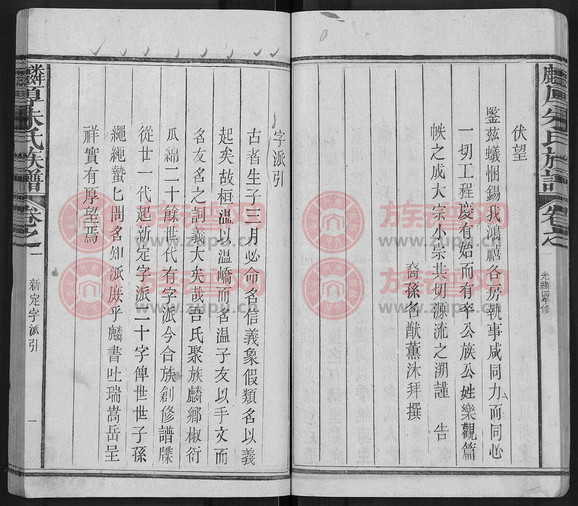 麟厚朱氏族譜
卷之一
光緒 年修
伏望
鑒茲蟻悃錫我鴻禧各房執事咸同力而同心
一切工程慶有始而有卒公族公姓樂觀篇
帙之成大宗小宗共切源流之溯謹 告
裔孫名猷薰沐拜撰
字派引
古者生子三月必命名信義象假類名以義
起矣故桓溫以溫嶠而名溫子友以手文而
名友名之詞義大矣哉吾氏聚族麟鄉椒衍
瓜綿二十餘世代有字派今合族創修譜牒
從廿一代起新定字派二十字俾世世子孫
繩繩蟄匕聞名知派庶乎麟書吐瑞嵩岳呈
祥實有厚望焉
麟厚朱氏族譜
卷之一
新定字派引
一
族譜网
www.zupu.cn